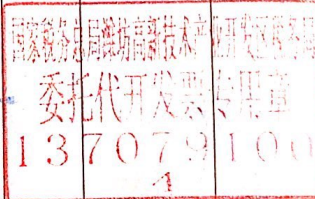 国家税务总局潍坊高新技术产业开发区税务局
委托代开发票专用章
137079100
4